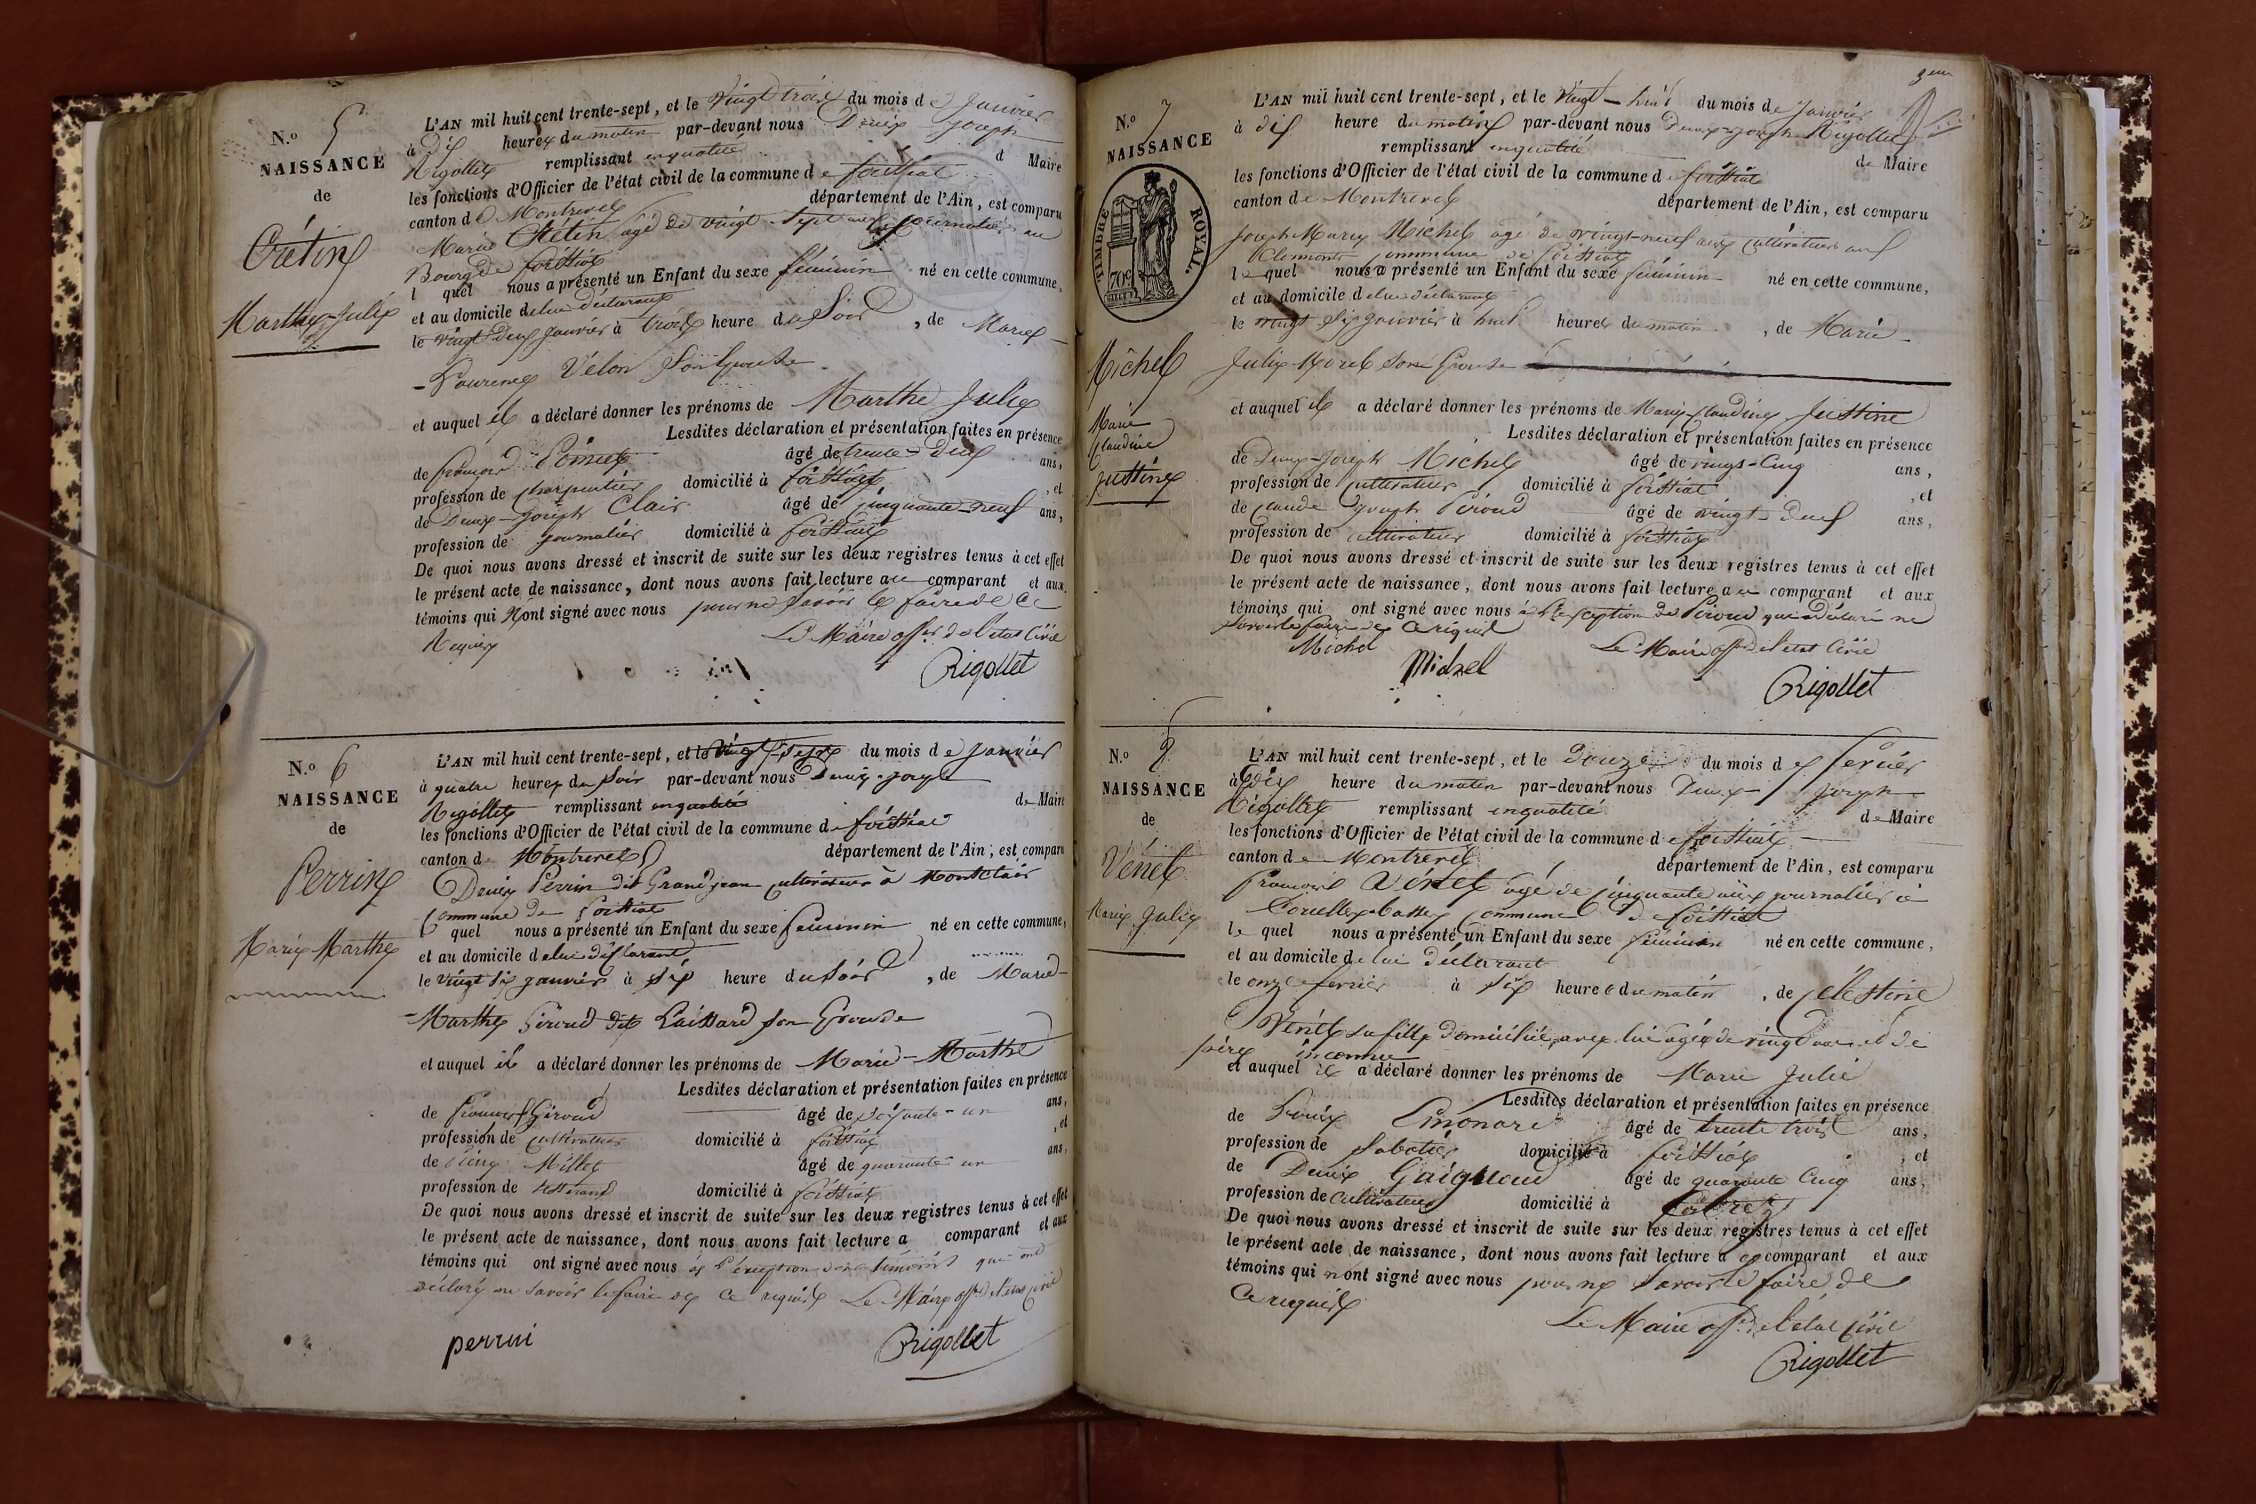 N.o 5
NAISSANCE
de
Crétin
Marthe Julie
L'AN mil huit cent trente-sept, et le vingt trois du mois de Janvier
à dix heures du matin par-devant nous Denis Joseph
Rigollet remplissant en qualité d Maire
les fonctions d'Officier de l'état civil de la commune de foissiat
canton de Montrevel département de l'Ain, est comparu
Marie Crétin agé de vingt sept ans journalier au
Bourg de foissiat
l quel nous a présenté un Enfant du sexe féminin né en cette commune,
et au domicile de lui déclarant
le vingt deux janvier à trois heure du soir, de Marie
Laurence Vélon son épouse
et auquel il a déclaré donner les prénoms de Marthe Julie
Lesdites déclaration et présentation faites en présence
de françois âgé de trente-deux ans,
profession de charpentier domicilié à foissiat, et
de Denis-Joseph Clair âgé de cinquante-neuf ans,
profession de journalier domicilié à foissiat
De quoi nous avons dressé et inscrit de suite sur les deux registres tenus à cet effet
le présent acte de naissance, dont nous avons fait lecture au comparant et aux
témoins qui n'ont signé avec nous pour ne savoir le faire de ce
Requis Le Maire off. de l'état civil
Rigollet
N.o 6
NAISSANCE
de
Perrin
Marie Marthe
L'AN mil huit cent trente-sept, et le vingt-sept du mois de Janvier
à quatre heures du soir par-devant nous Denis-Joseph
Rigollet remplissant en qualité de Maire
les fonctions d'Officier de l'état civil de la commune de foissiat
canton de Montrevel département de l'Ain, est comparu
Denis Perrin dit Grandjean cultivateur à Montclair
commune de foissiat
l quel nous a présenté un Enfant du sexe féminin né en cette commune,
et au domicile de lui déclarant
le vingt six janvier à six heure du soir, de Marie
Marthe Giroud dit son Epouse
et auquel il a déclaré donner les prénoms de Marie-Marthe
Lesdites déclaration et présentation faites en présence
de françois Giroud âgé de soixante-un ans,
profession de cultivateur domicilié à foissiat, et
de Millet âgé de quarante un ans,
profession de domicilié à foissiat
De quoi nous avons dressé et inscrit de suite sur les deux registres tenus à cet effet
le présent acte de naissance, dont nous avons fait lecture a comparant et aux
témoins qui ont signé avec nous à l'exception des témoins qui ont
déclaré ne savoir le faire de ce requis Le Maire off. de l'état civil
perrin Rigollet
3eme
N.o 7
NAISSANCE
TIMBRE ROYAL.
70c
Michel
Marie
Claudine
Justine
L'AN mil huit cent trente-sept, et le vingt-huit du mois de Janvier
à dix heure du matin par-devant nous Denis-Joseph Rigollet
remplissant en qualité de Maire
les fonctions d'Officier de l'état civil de la commune de foissiat
canton de Montrevel département de l'Ain, est comparu
Joseph Marie Michel agé de vingt-neuf ans cultivateur aux
Clermonts commune de foissiat
le quel nous a présenté un Enfant du sexe féminin né en cette commune,
et au domicile de lui déclarant
le vingt six janvier à huit heures du matin, de Marie
Julie Morel son Epouse
et auquel il a déclaré donner les prénoms de Marie Claudine Justine
Lesdites déclaration et présentation faites en présence
de Denis-Joseph Michel âgé de vingt-cinq ans,
profession de cultivateur domicilié à foissiat, et
de Claude Joseph Péroud âgé de vingt-deux ans,
profession de cultivateur domicilié à foissiat
De quoi nous avons dressé et inscrit de suite sur les deux registres tenus à cet effet
le présent acte de naissance, dont nous avons fait lecture au comparant et aux
témoins qui ont signé avec nous à l'exception de Péroud qui a déclaré ne
savoir le faire de ce requis
Michel Le Maire off. de l'état civil
Michel
Rigollet
N.o 8
NAISSANCE
de
Vénet
Marie Julie
L'AN mil huit cent trente-sept, et le Douze du mois de fevrier
à dix heure du matin par-devant nous Denis Joseph
Rigollet remplissant en qualité de Maire
les fonctions d'Officier de l'état civil de la commune de foissiat
canton de Montrevel département de l'Ain, est comparu
françois Vénet agé de cinquante ans journalier à
commune de foissiat
le quel nous a présenté un Enfant du sexe féminin né en cette commune,
et au domicile de lui declarant
le onze fevrier à six heure du matin, de Célestine
Vénet sa fille domiciliée avec lui agée de vingt ans et de
père inconnu
et auquel il a déclaré donner les prénoms de Marie Julie
Lesdites déclaration et présentation faites en présence
de Louis âgé de trente trois ans,
profession de sabotier domicilié à foissiat, et
de Denis âgé de quarante cinq ans,
profession de cultivateur domicilié à
De quoi nous avons dressé et inscrit de suite sur les deux registres tenus à cet effet
le présent acte de naissance, dont nous avons fait lecture a comparant et aux
témoins qui n'ont signé avec nous pour ne savoir le faire de
ce requis
Le Maire off. de l'état civil
Rigollet